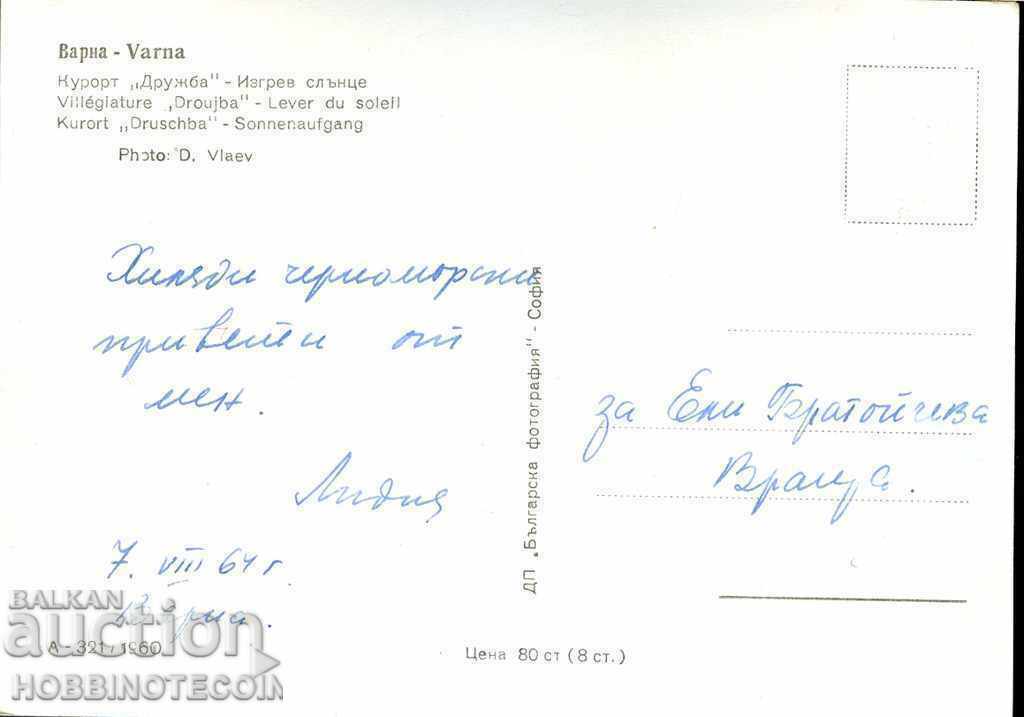 Варна - Varna
Курорт „Дружба" - Изгрев слънце
Villégiature „Droujba" - Lever du soleil
Kurort „Druschba" - Sonnenaufgang
Photo: D. Vlaev
Хиляди черноморски
привети от
мен.
Лидия
7. VIII 64 г.
Варна.
А - 321 / 1960
ДП „Българска фотография" - София
за Ени Братойчева
Враца.
Цена 80 ст (8 ст.)
BALKAN
auction
HOBBINOTECOIN